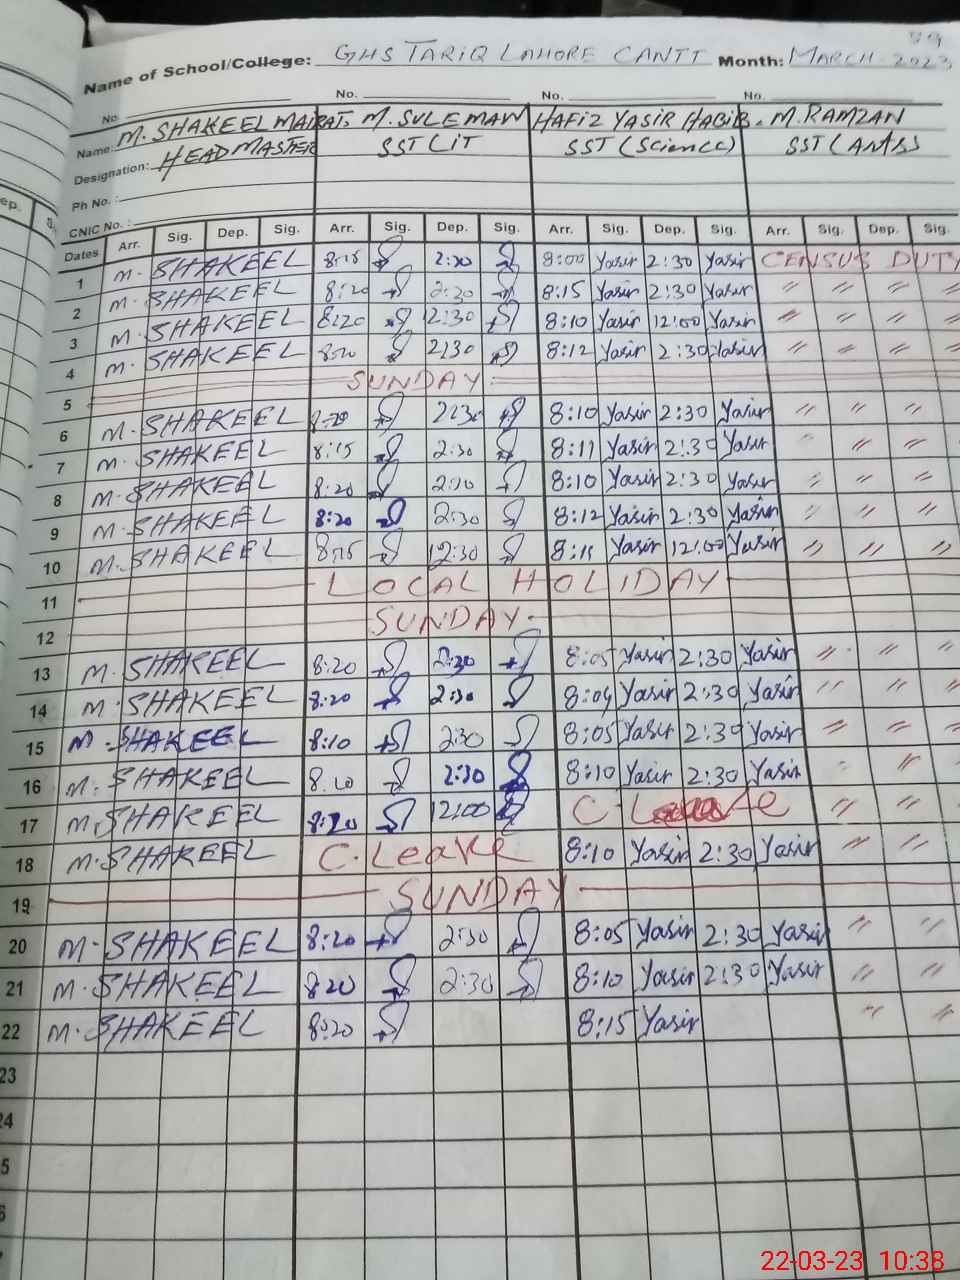 39
Name of School/College: GHS TARIQ LAHORE CANTT Month: MARCH-2023
No. No. No. No.
Name: M. SHAKEEL M. SULEMAN HAFIZ YASIR HABIB. M. RAMZAN
Designation: HEADMASTER SST (IT SST (Science) SST (
Ph No.:
CNIC No.:
Dates Arr. Sig. Dep. Sig. Arr. Sig. Dep. Sig. Arr. Sig. Dep. Sig. Arr. Sig. Dep. Sig.
1 M. SHAKEEL 8:15 2:30 8:00 Yasir 2:30 Yasir CENSUS DUTY
2 M. SHAKEEL 8:20 2:30 8:15 Yasir 2:30 Yasir " " " "
3 M. SHAKEEL 8:20 12:30 8:10 Yasir 12:00 Yasir " " " "
4 M. SHAKEEL 8:20 2:30 8:12 Yasir 2:30 Yasir " " " "
5 SUNDAY
6 M. SHAKEEL 8:20 2:30 8:10 Yasir 2:30 Yasir " " " "
7 M. SHAKEEL 8:15 2:30 8:11 Yasir 2:30 Yasir " " " "
8 M. SHAKEEL 8:20 8:10 Yasir 2:30 Yasir " " " "
9 M. SHAKEEL 8:20 2:30 8:12 Yasir 2:30 Yasir " " " "
10 M. SHAKEEL 8:15 12:30 8:11 Yasir 12:00 Yasir " " " "
11 LOCAL HOLIDAY
12 SUNDAY
13 M. SHAKEEL 8:20 2:30 8:05 Yasir 2:30 Yasir " " " "
14 M. SHAKEEL 8:20 2:30 8:04 Yasir 2:30 Yasir " " "
15 M. SHAKEEL 8:10 2:30 8:05 Yasir 2:30 Yasir " " "
16 M. SHAKEEL 8:10 2:30 8:10 Yasir 2:30 Yasir " " "
17 M. SHAKEEL 8:20 12:00 C Leave " " "
18 M. SHAKEEL C. Leave 8:10 Yasir 2:30 Yasir " " "
19 SUNDAY
20 M. SHAKEEL 8:20 2:30 8:05 Yasir 2:30 Yasir " "
21 M. SHAKEEL 8:20 2:30 8:10 Yasir 2:30 Yasir " "
22 M. SHAKEEL 8:20 8:15 Yasir " "
23
24
5
6
22-03-23 10:38